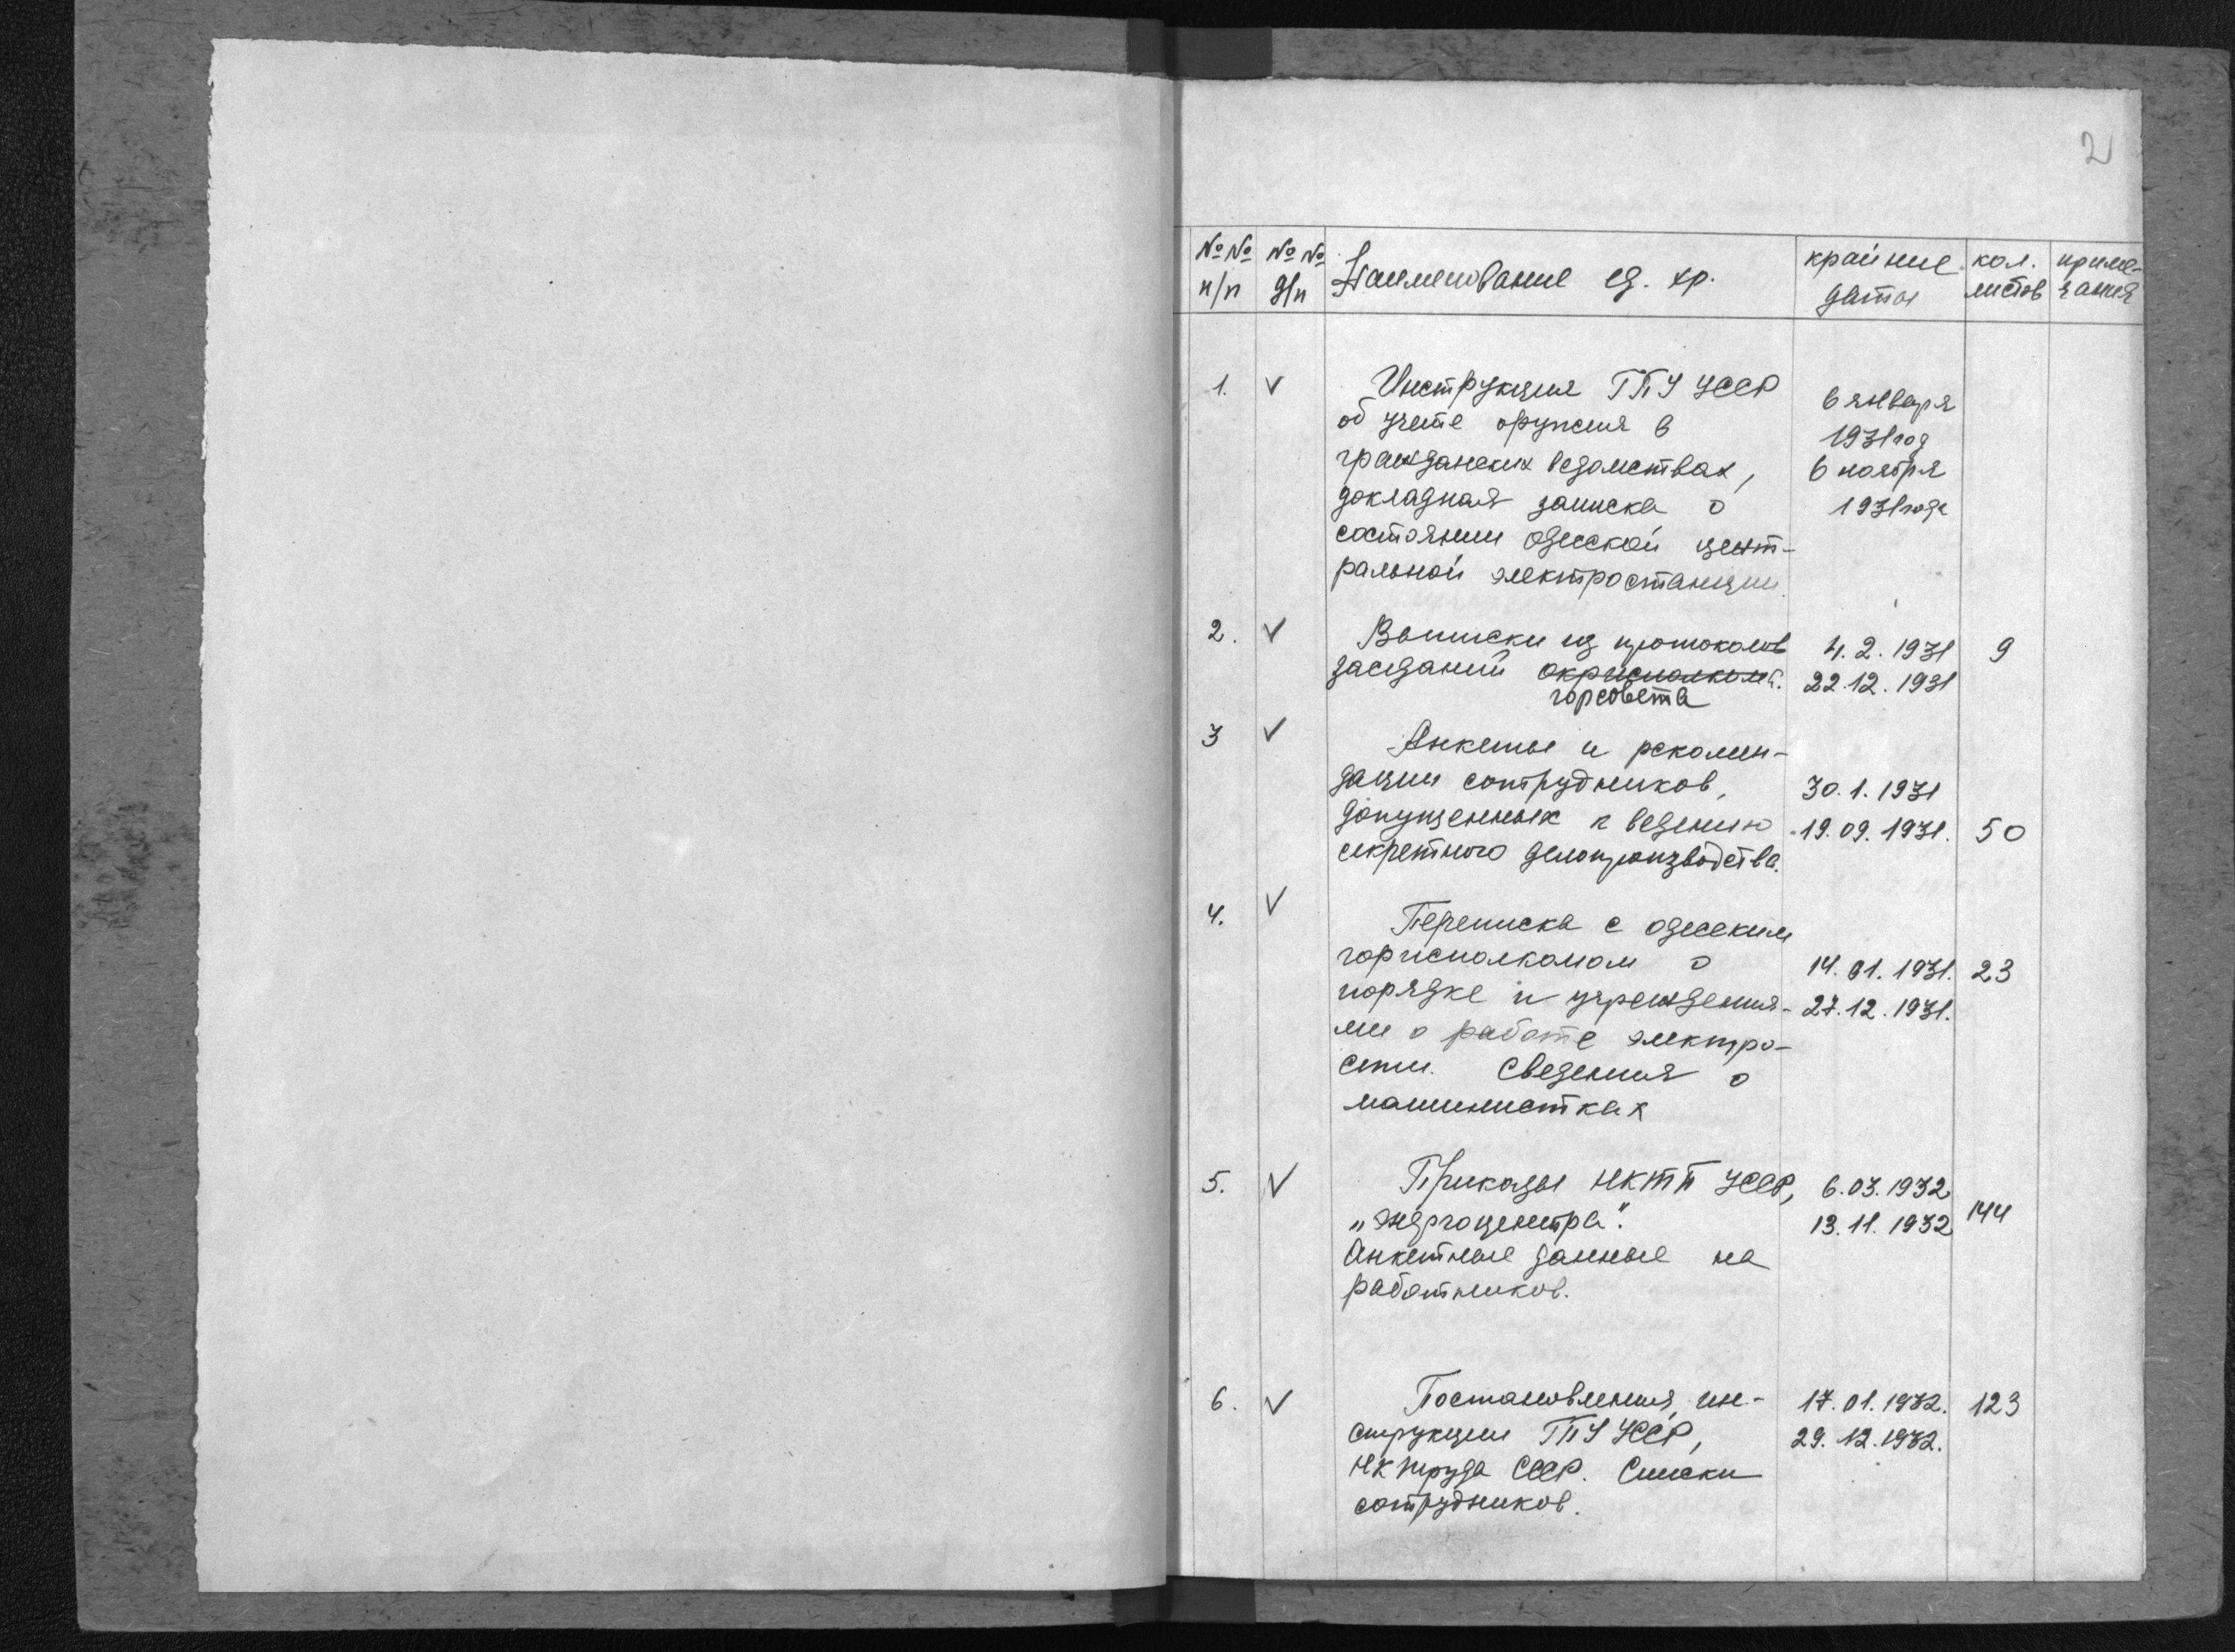 2
№№ п/п №№ д/п Наименование ед. хр. крайние даты кол. листов приме-чания
1. V Инструкция ГПУ УССР 6 января
об учете оружия в 1931 год
гражданских ведомствах, 6 ноября
докладная записка о 1931 года
состоянии одесской цент-
ральной электростанции.
2. V Выписки из протоколов 4.2.1931 9
заседаний окрисполкома. 22.12.1931
горсовета
3 V Анкеты и рекомен-
дации сотрудников, 30.1.1931
допущенных к ведению 19.09.1931. 50
секретного делопроизводства.
4. V Переписка с одесским
горисполкомом о 14.01.1931. 23
порядке и учреждения- 27.12.1931.
ми о работе электро-
сети. Сведения о
машинистках
5. V Приказы НКТП УССР, 6.03.1932
„Энергоцентра". 13.11.1932 144
Анкетные данные на
работников.
6. V Постановления, ин- 17.01.1932. 123
струкции ГПУ УССР, 29.12.1932.
НК труда СССР. Списки
сотрудников.